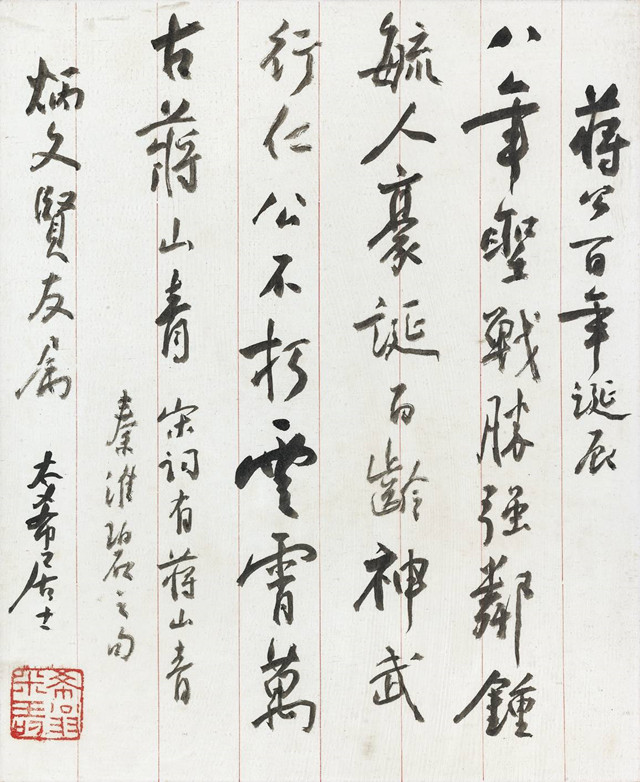 蔣公百年誕辰
八年聖戰勝强鄰鍾
毓人豪誕百齡神武
行仁公不朽雲霄萬
古蔣山青宋詞有蔣山青
秦淮碧之句
炳文賢友属
太希居士